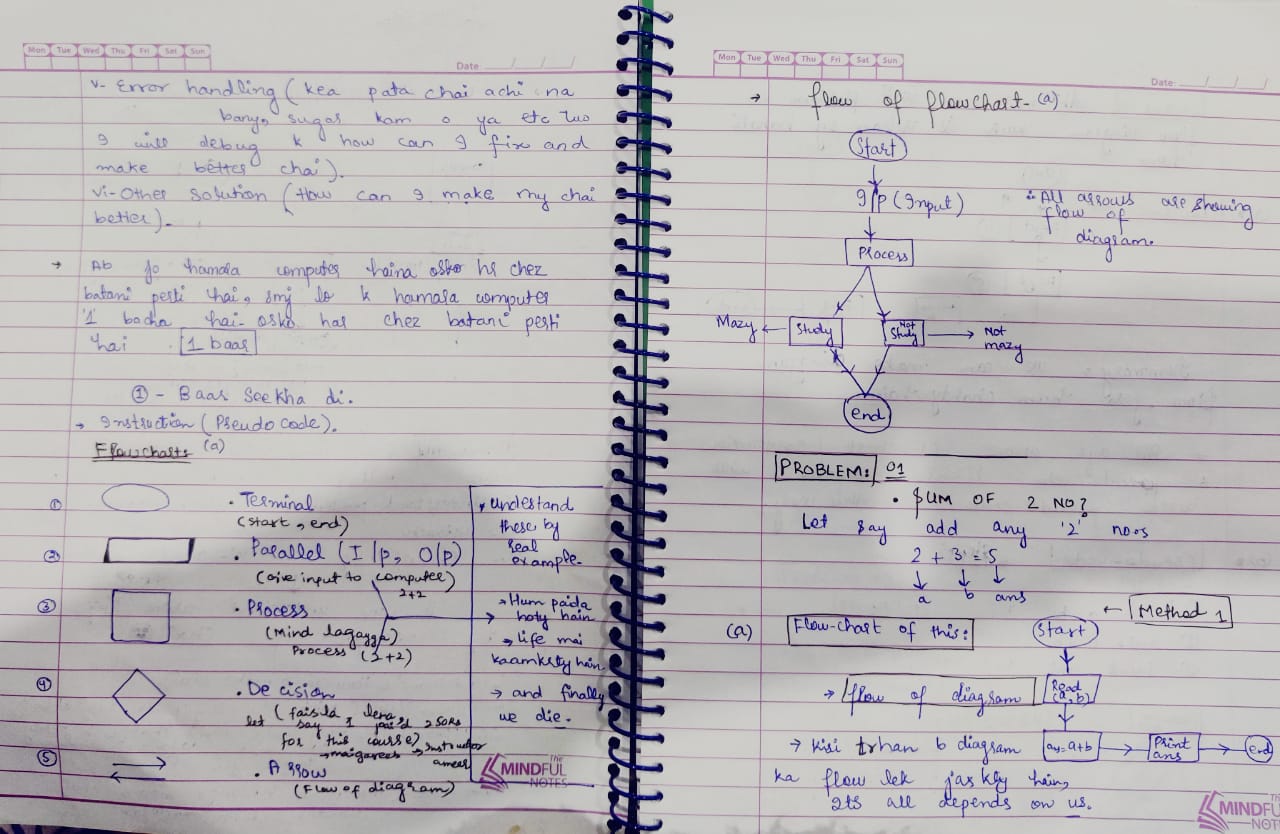 Mon Tue Wed Thu Fri Sat Sun
Date
V- Error handling ( kea pata chai achi na
bany, sugar kam o ya etc tuo
I will debug k how can I fix and
make better chai).
Vi- Other Solution ( How can I make my chai
better).
→ Ab jo hamara computer haina osko hr chez
batani perti hai, smj lo k hamara computer
'1' bacha hai- osko har chez batani perti
hai 1 baar
① - Baar Seekha di.
→ Instruction ( Pseudo code).
Flowcharts (a)
① • Terminal
(start, end)
② • Parallel ( I/p, O/p)
(Give input to computer)
2+2
③ • Process
(Mind lagayga)
Process (2+2)
④ • Decision
( faisla lena
let say I paid 2 50Rs
for this course)
→ maigareeb → instructor
ameer
⑤ • Arrow
(Flow of diagram)
• understand
these by
real
example.
→ Hum paida
hoty hain
→ life mai
kaamkrty hain
→ and finally
we die.
The
MINDFUL
NOTES
Mon Tue Wed Thu Fri Sat Sun
Date:
→ flow of flowchart- (a)
Start
I/p (Input)
∴ All arrows are showing
flow of
diagram.
Process
Mazy ← Study
Not Study → Not mazy
end
PROBLEM: 01
• SUM OF 2 NO?
Let say add any '2' no.s
2 + 3 = 5
a b ans
← Method 1
(a) Flow-chart of this:
Start
→ flow of diagram
Read
(a,b)
→ Kisi trhan b diagram
a+b
Print
ans
end
ka flow lek jaskty hain,
Its all depends on us.
The
MINDFUL
NOTES